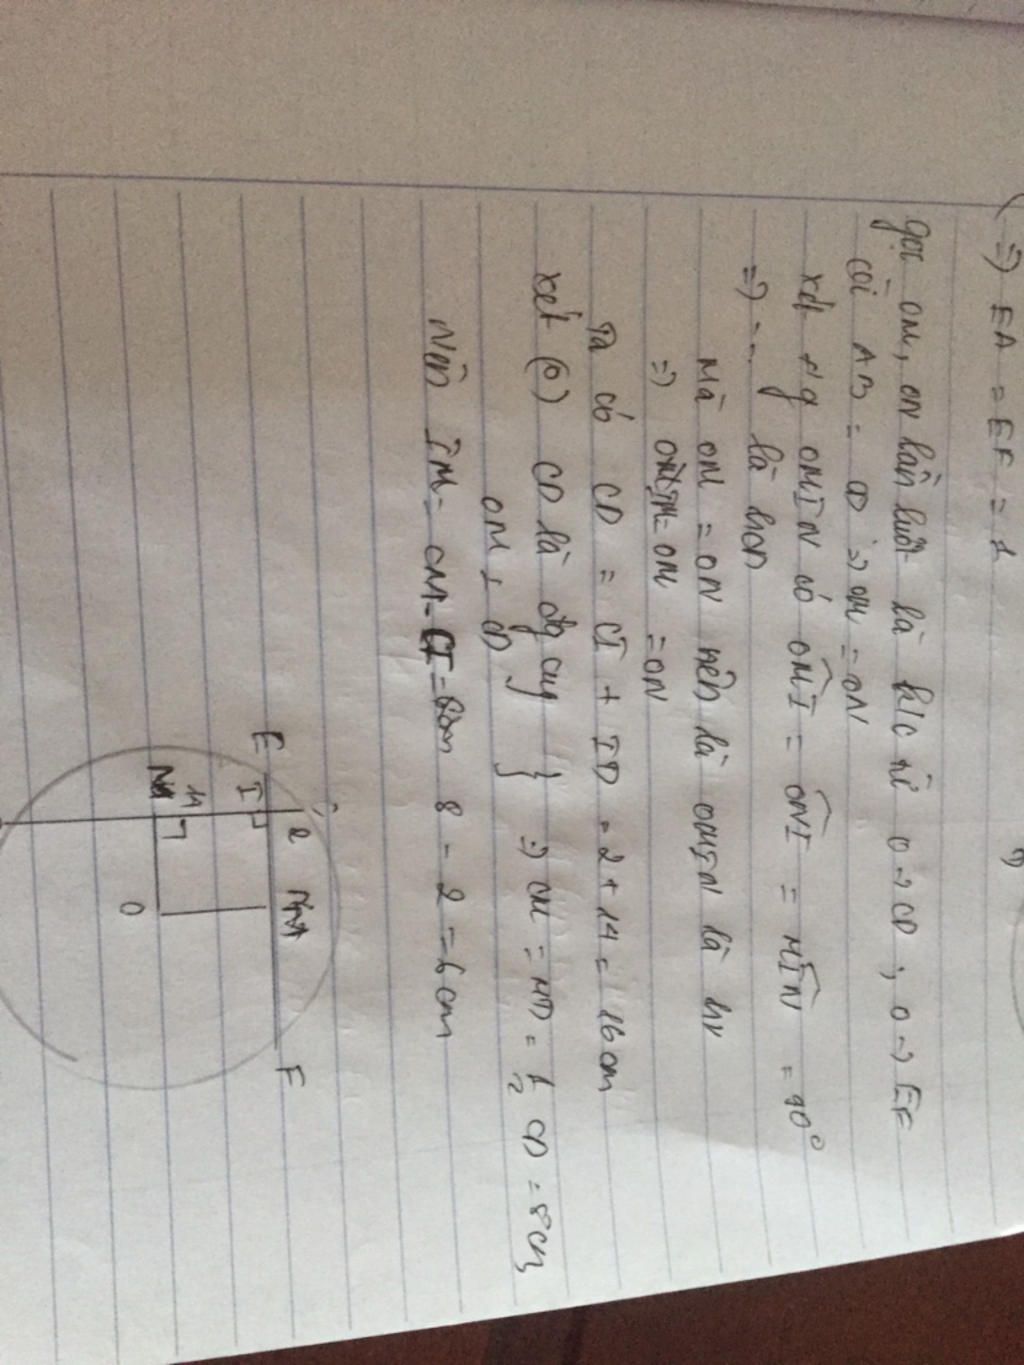 =) EA = EF = 1
Gọi OM, ON lần lượt là k/c từ O -> CD ; O -> EF
có AB = CD => OM = ON
xét tg OMIN có OMI = ONI = MIN = 90°
=) ... là hcn
Mà OM = ON nên là OMIN là hv
=) IM = OM = ON
Ta có CD = CI + ID = 2 + 14 = 16 cm
xét (O) CD là dg cug } => CM = MD = 1/2 CD = 8cm
OM ⊥ CD }
Nên IM = CM - CI = 8 - 2 = 6 cm
E
I
2
F
M
N
O